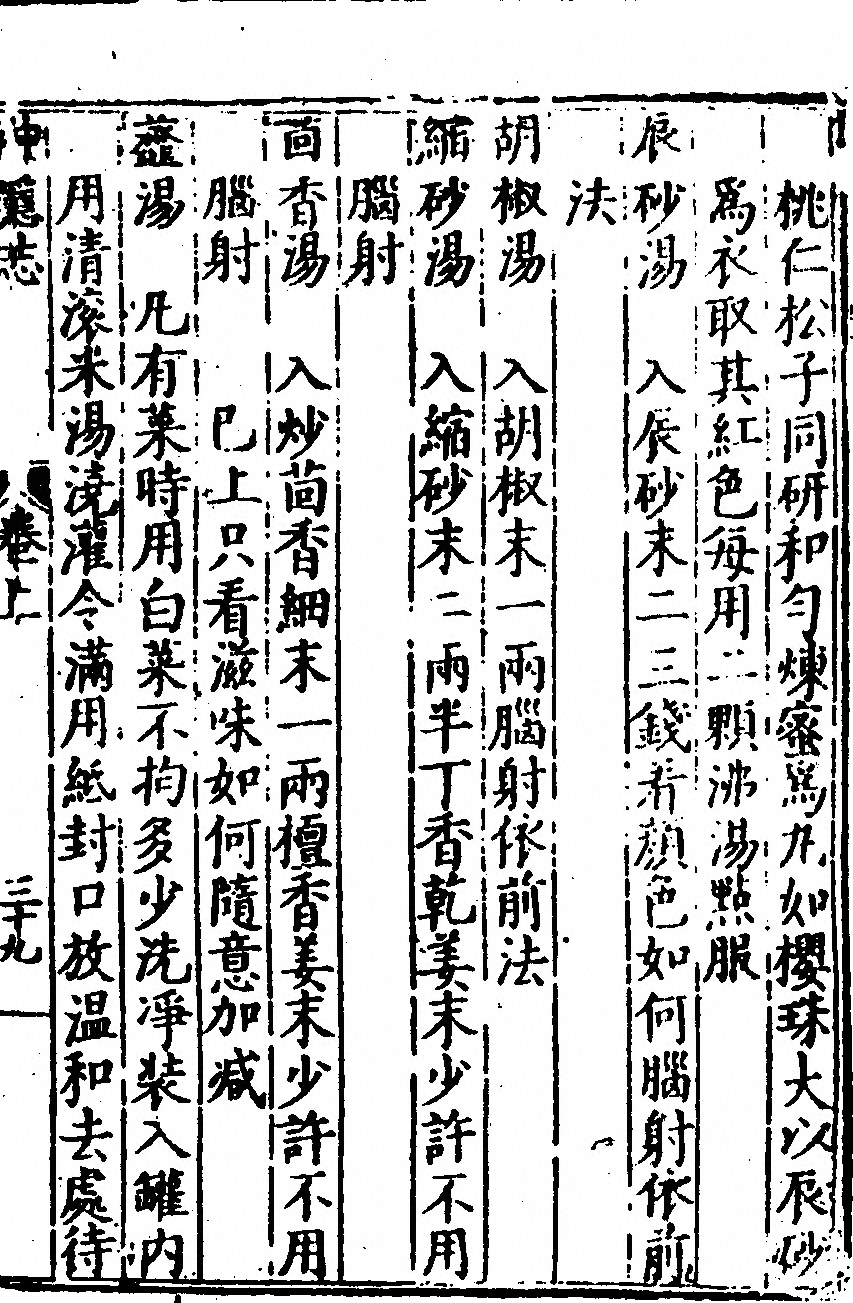 桃仁松子同研和勻煉蜜爲九如櫻珠大以辰砂
爲衣取其紅色每用二顆沸湯點服
辰砂湯　入辰砂末二三錢看顏色如何腦射依前
法
胡椒湯　入胡椒末一兩腦射依前法
縮砂湯　入縮砂末二兩半丁香乾姜末少許不用
腦射
茴香湯　入炒茴香細末一兩檀香姜末少許不用
腦射　　巳上只看滋味如何隨意加减
虀湯　凡有菜時用白菜不拘多少洗凈裝入罐內
用清滚米湯澆灌令滿用紙封口放温和去處待
卷上　三十九